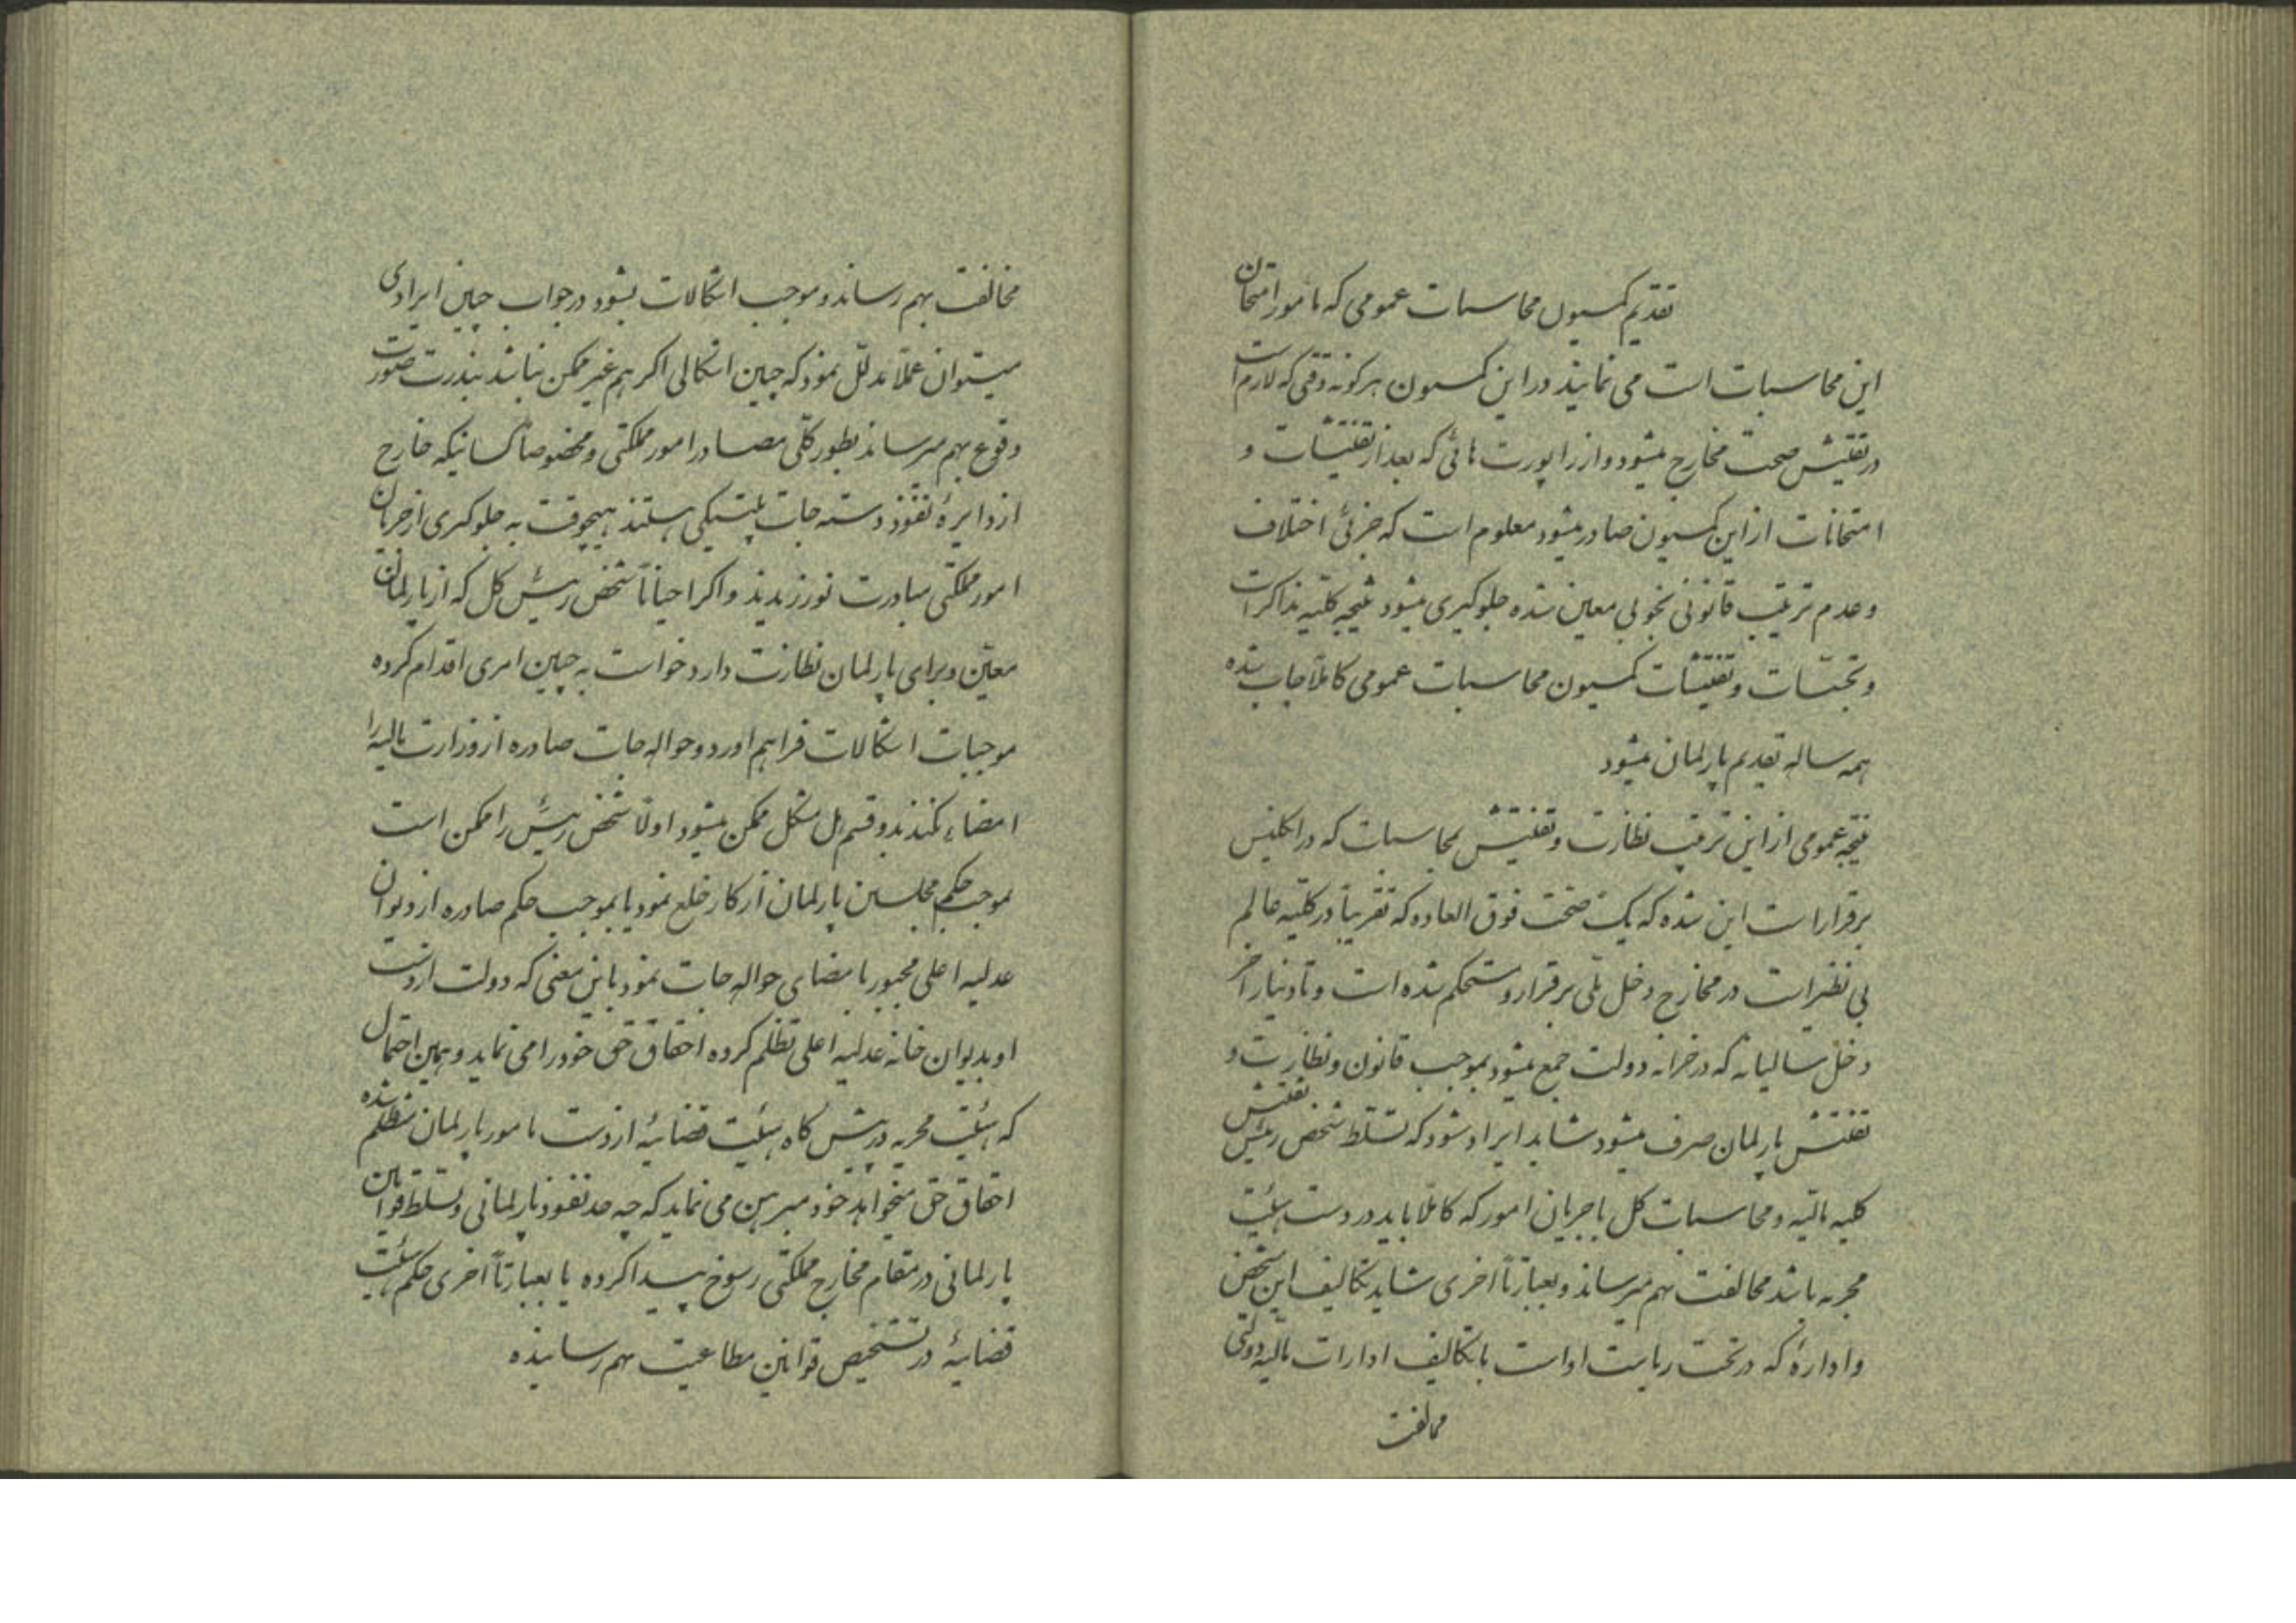 تقدیم کمسیون محاسبات عمومی که مأمور امتحان
این محاسبات است می نمایند در این کمسیون هرکونه دقتی که لازم است
در تفتیش صحت مخارج میشود و از راپورت هائی که بعد از تفتیشات و
امتحانات از این کمسیون صادر میشود معلوم است که جزئی اختلاف
و عدم ترتیب قانونی بخوبی معین شده جلوکیری میشود نتیجه کلیه مذاکرات
و تجسّسات و تفتیشات کمسیون محاسبات عمومی کاملاً چاپ شده
همه ساله تقدیم پارلمان میشود
نتیجه عمومی از این ترتیب نظارت و تفتیش محاسبات که در انکلیس
برقرار است این شده که یک صحت فوق العاده که تقریباً در کلیّه عالم
بی نظیر است در مخارج دخل ملّی برقرار و مستحکم شده است و تا دینار آخر
دخل سالیانه که در خزانه دولت جمع میشود بموجب قانون و نظارت و تفتیش
تفتیش پارلمان صرف میشود شاید ایراد شود که تسلّط شخص رئیس
کلیه مالیّه و محاسبات کل با جریان امور که کاملاً باید در دست هیئت
مجریه باشد مخالفت بهم میرساند و بعبارتاً اخری شاید تکالیف این شخص
و ادارهٔ که در تحت ریاست اواست با تکالیف ادارات مالیّه دولتی
مخالفت
مخالفت بهم رساند و موجب اشکالات بشود در جواب چنین ایرادی
میتوان عملاً مدلّل نمود که چنین اشکالی اکر هم غیر ممکن نباشد بندرت صورت
وقوع بهم میرساند بطور کلّی مصادر امور مملکتی و مخصوصاً کسانیکه خارج
از دایرهٔ نفوذ دسته جات پلتیکی هستند هیچوقت به جلوکیری از جریان
امور مملکتی مبادرت نورزیدند و اکر احیاناً شخص رئیس کل که از پارلمان
معیّن و برای پارلمان نظارت دارد خواست به چنین امری اقدام کرده
موجبات اشکالات فراهم اورد و حواله جات صادره از وزارت مالیه را
امضاء نکند بدو قسم حل مشکل ممکن میشود اولاً شخص رئیس را ممکن است
بموجب حکم مجلسین پارلمان از کار خلع نمود یا بموجب حکم صادره از دیوان
عدلیه اعلی مجبور با مضای حواله جات نمود باین معنی که دولت از دست
او بدیوان خانه عدلیه اعلی تظلّم کرده احقاق حق خود را می نماید و همین احتمال
که هیئت مجریه در پیش کاه هیئت قضائیهٔ از دست مامور پارلمان متظلّم شده
احقاق حق میخواهد خود مبرهن می نماید که چه حد نفوذ پارلمانی و تسلّط قوانین
پارلمانی در مقام مخارج مملکتی رسوخ پیدا کرده یا بعبارتاً اخری حکم هیئت
قضائیهٔ در تشخیص قوانین مطاعیت بهم رسانیده